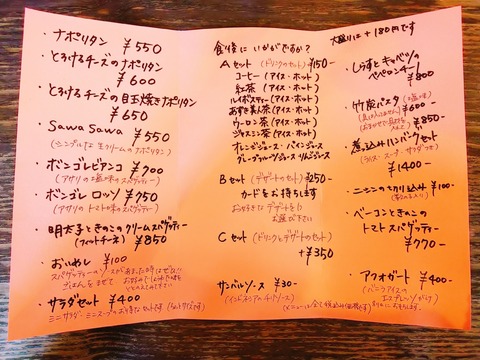 ・ナポリタン ¥550
・とろけるチーズのナポリタン
¥600
・とろけるチーズの目玉焼きナポリタン
¥650
・sawa sawa ¥550
(シンプルな生クリームのナポリタン)
・ボンゴレビアンコ ¥700
(アサリの塩味のスパゲッティー)
・ボンゴレ ロッソ ¥750
(アサリのトマト味のスパゲッティー)
・明太子ときのこのクリームスパゲッティー
(フィットチーネ) ¥850
・おいめし ¥100
スパゲッティーのソースが
・サラダセット ¥400
食後にいかがですか?
Aセット (ドリンクのセット) ¥150-
コーヒー (アイス・ホット)
紅茶 (アイス・ホット)
ルイボスティー (アイス・ホット)
あずき美人茶 (アイス・ホット)
ウーロン茶 (アイス・ホット)
ジャスミン茶 (アイス・ホット)
オレンジジュース・パインジュース
グレープフルーツジュース りんごジュース
Bセット (デザートのセット) ¥250-
カードをお持ちします
お好きなデザートを
お選び下さい
Cセット (ドリンクとデザートのセット)
+¥350
サンバルソース ¥30-
(インドネシアのチリソース)
大盛りは+180円です
・しらすとキャベツの
ペペロンチーノ
¥800
・竹炭パスタ ¥600-
¥850-
・煮込みハンバーグセット
(ライス・スープ・サラダつき)
¥1400
・ニンニクのちカラ込み ¥100-
・ベーコンときのこの
トマトスパゲッティー
¥770-
・アフォガート ¥400-
(バニラアイスの
エスプレッソがけ)
(メニューは全て税込み価格です)